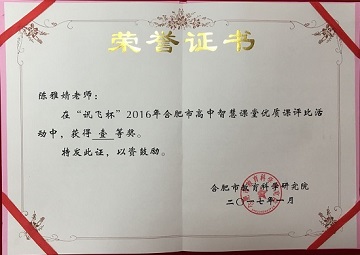 荣誉证书
陈雅婧老师：
在“讯飞杯”2016年合肥市高中智慧课堂优质课评比活
动中，获得 壹 等奖。
特发此证，以资鼓励。
合肥市教育科学研究院
二〇一七年一月